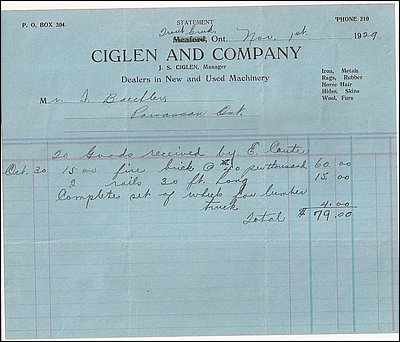 P. O. BOX 304
STATEMENT
'PHONE 210
Trout Creek
Meaford, Ont. Nov. 1st 1929
CIGLEN AND COMPANY
J. S. CIGLEN, Manager
Dealers in New and Used Machinery
Iron, Metals
Rags, Rubber
Horse Hair
Hides, Skins
Wool, Furs
Mr. I. Baechler
Powassan Ont.
To Goods received by E
Oct. 30 1500 fire brick @ $40 per thousand 60.00
2 rails 30 ft. long 15.00
Complete set of wheels for lumber
truck 4.00
Total $79.00